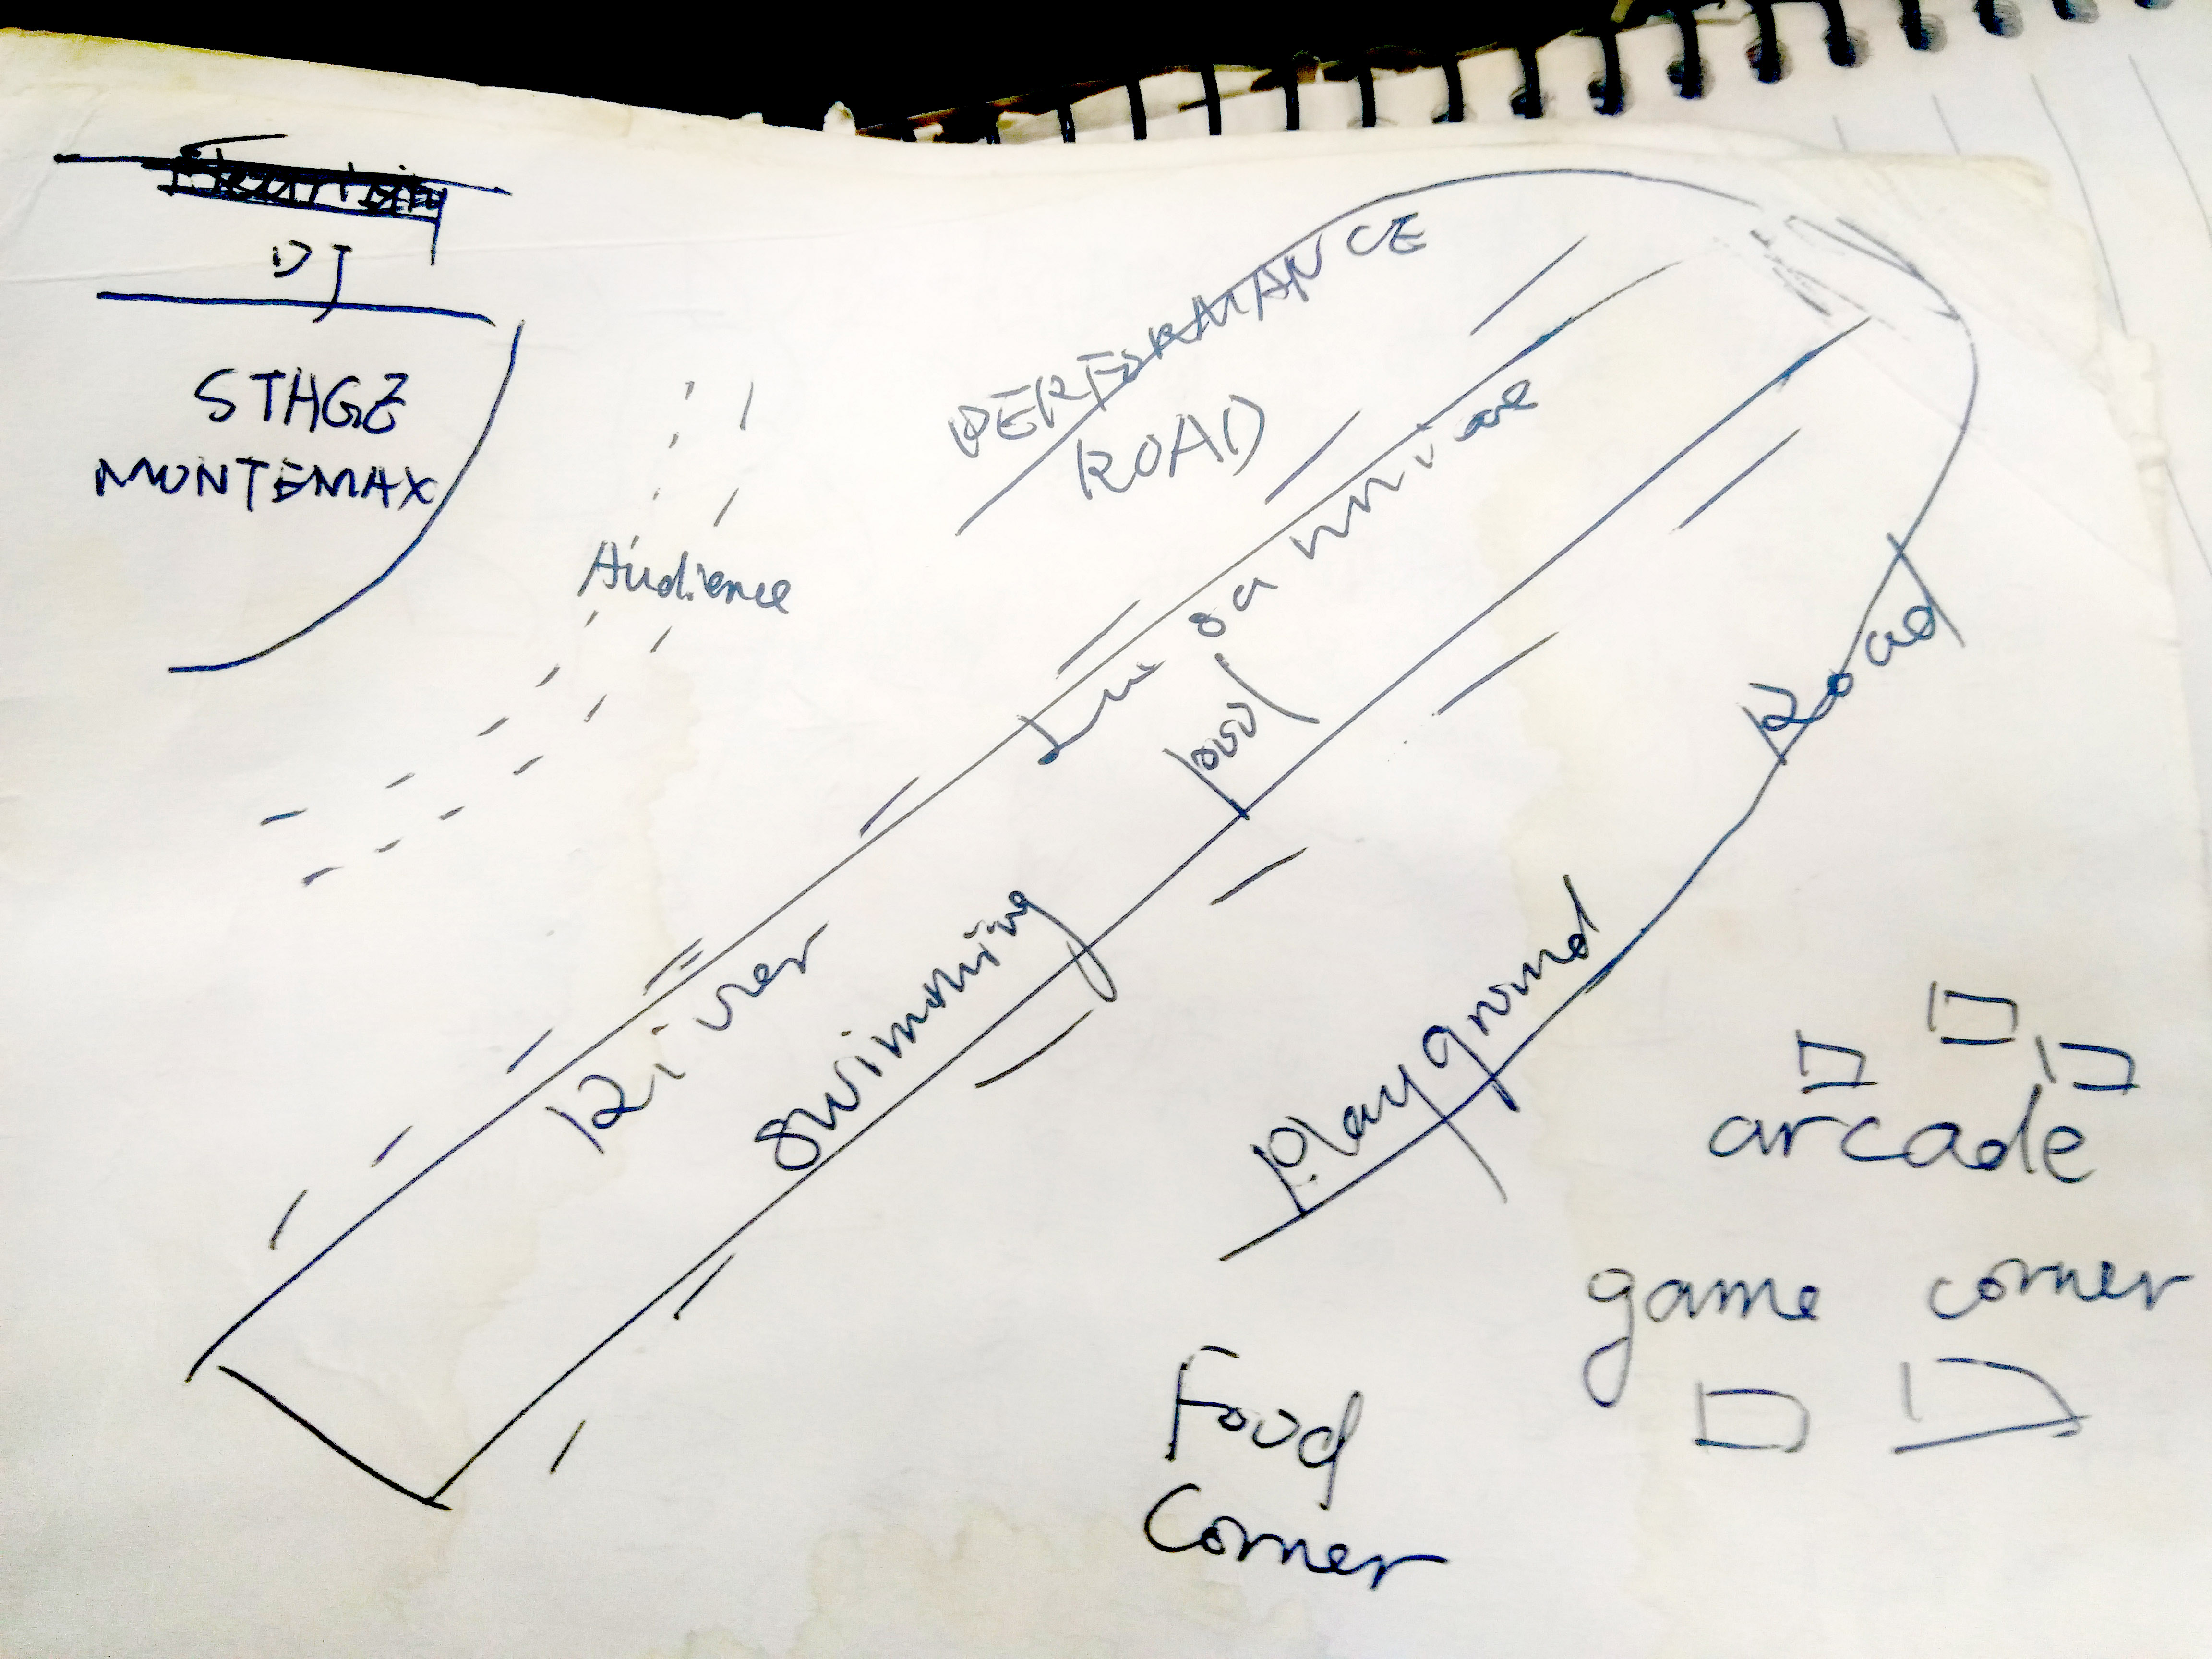 DJ
STAGE
MONTEMAX
Audience
PERFORMANCE
ROAD
River
swimming
pool
Road
Playground
arcade
game corner
Food
Corner